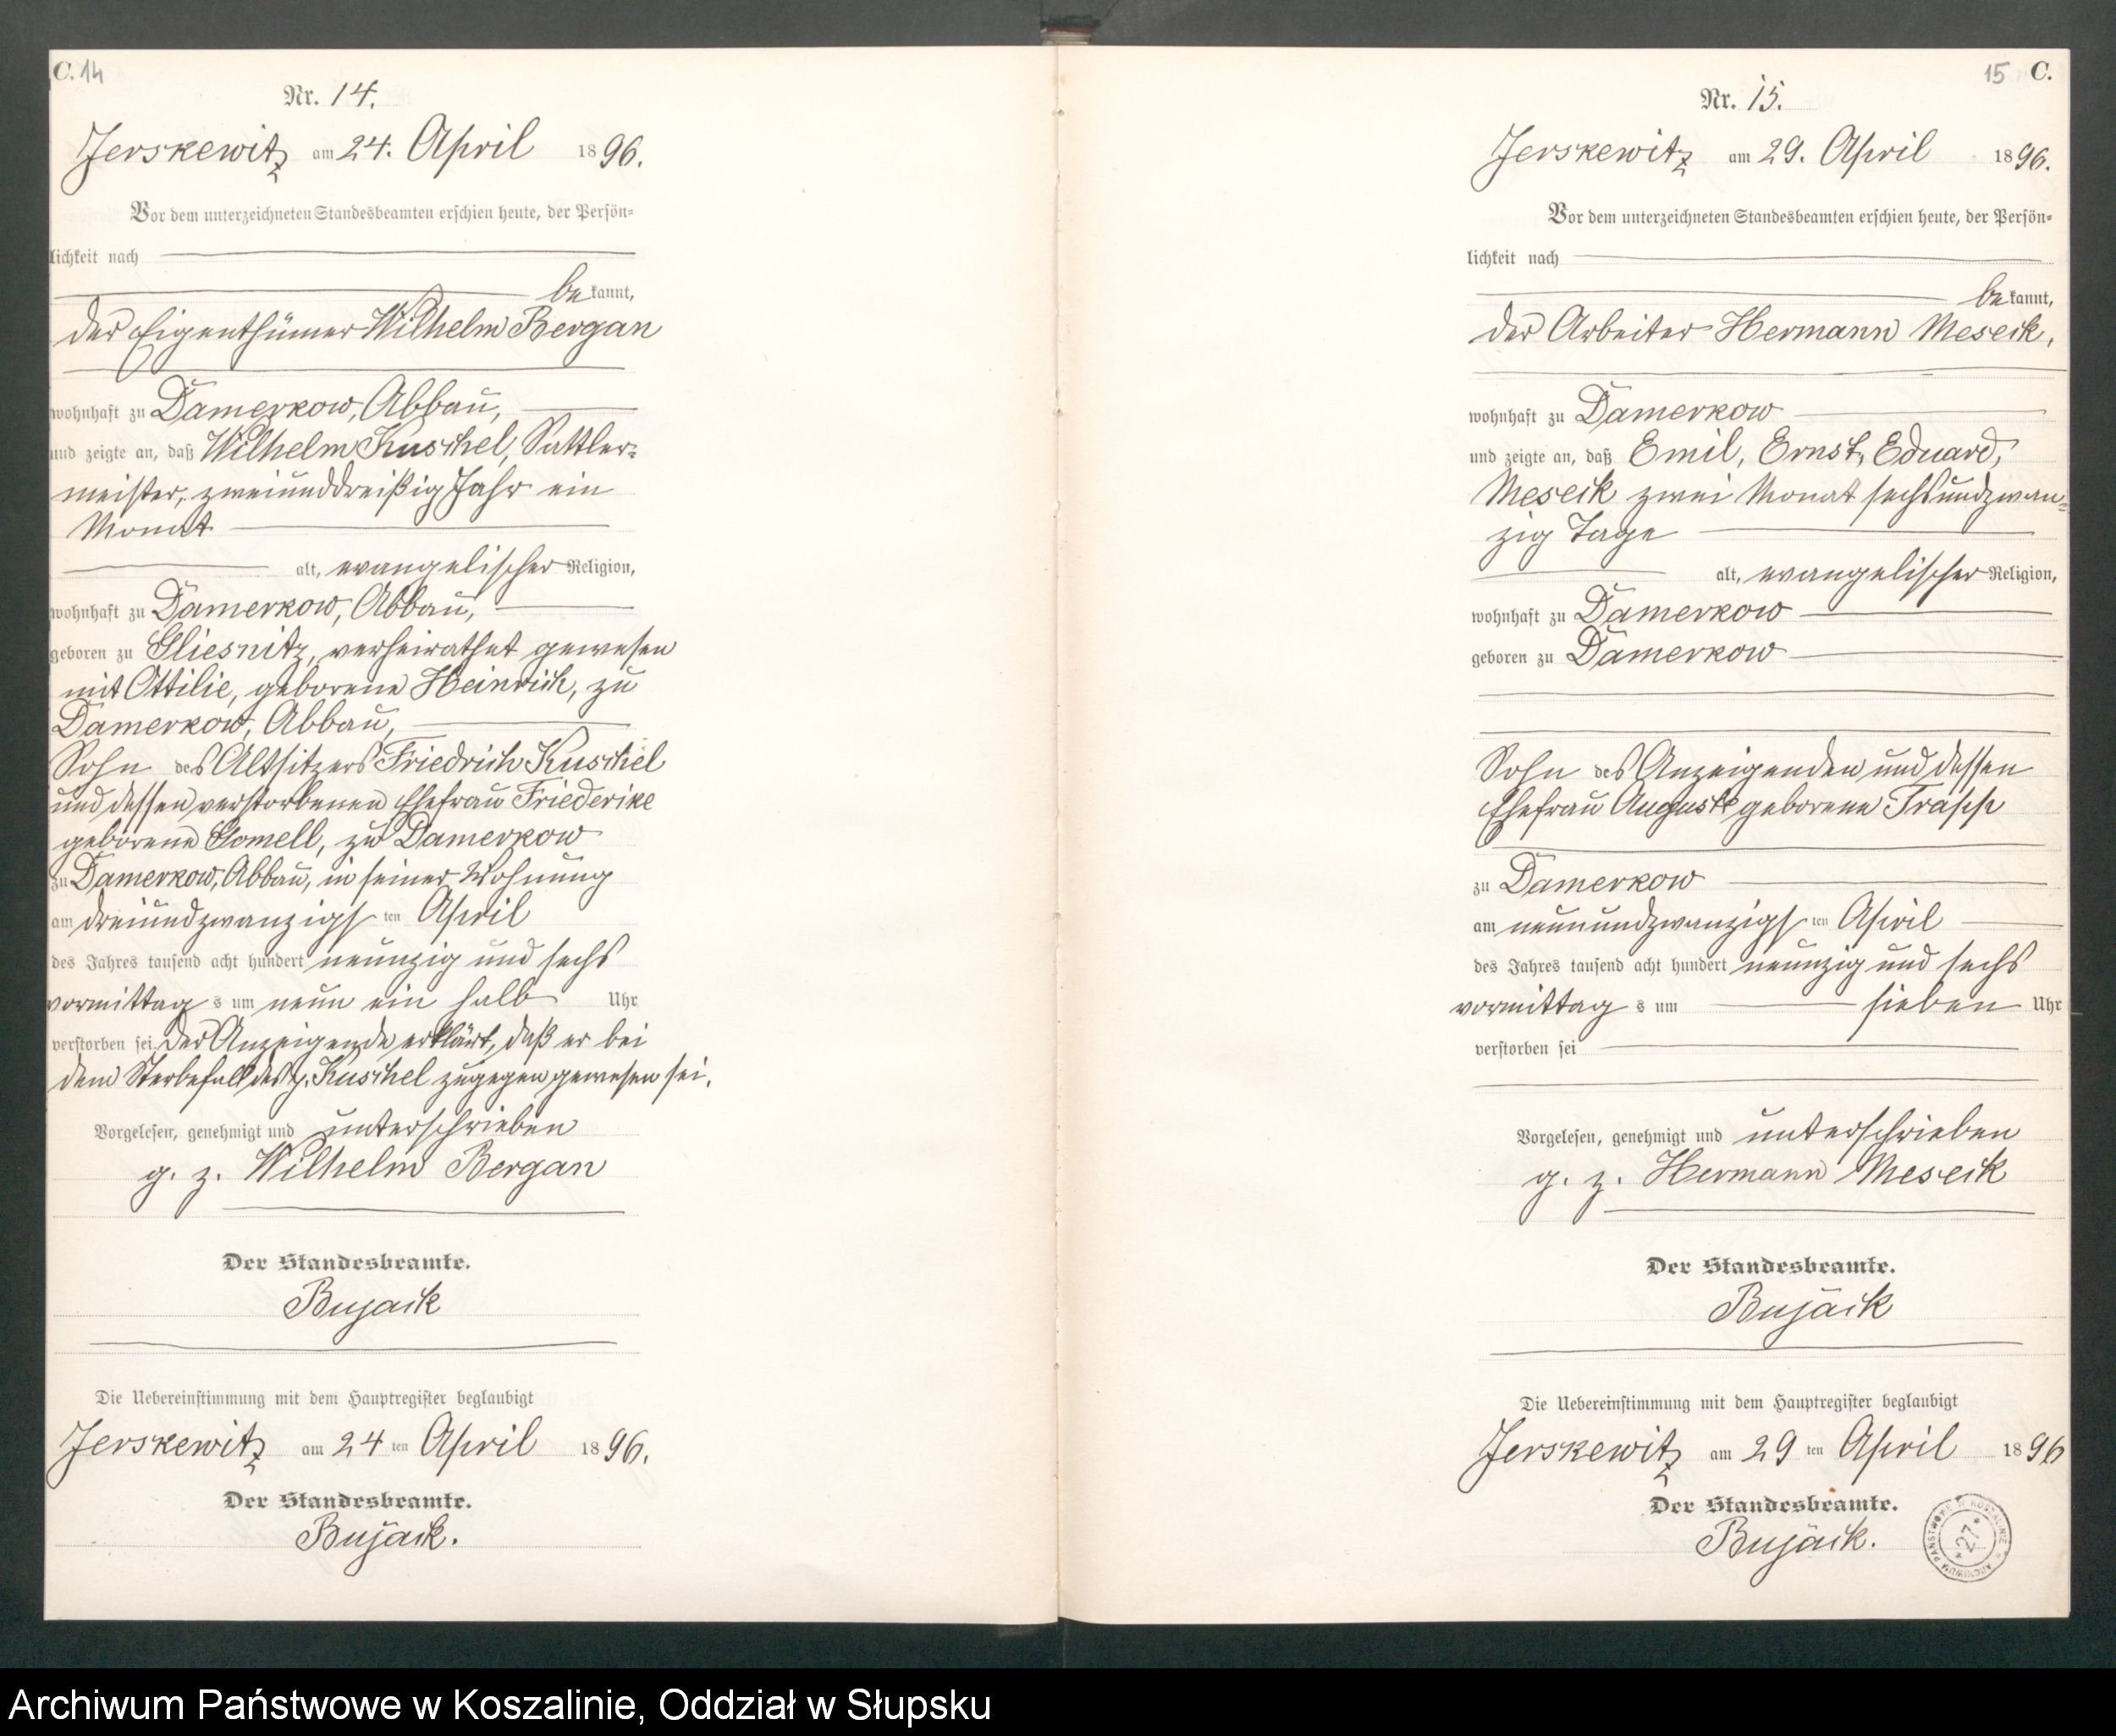 C. 14
Nr. 14.
Jerskewitz am 24. April 1896.
Vor dem unterzeichneten Standesbeamten erschien heute, der Persön-
lichkeit nach
bekannt,
der Eigenthümer Wilhelm Bergan
wohnhaft zu Damerkow, Abbau,
und zeigte an, daß Wilhelm Kuschel, Sattler-
meister, zweiunddreißig Jahr ein
Monat
alt, evangelischer Religion,
wohnhaft zu Damerkow, Abbau,
geboren zu Gliesnitz, verheirathet gewesen
mit Ottilie, geborene Heinrich, zu
Damerkow, Abbau,
Sohn des Altsitzers Friedrich Kuschel
und dessen verstorbenen Ehefrau Friederike
geborene Gomell, zu Damerkow
zu Damerkow, Abbau, in seiner Wohnung
am dreiundzwanzigsten April
des Jahres tausend acht hundert neunzig und sechs
vormittags um neun ein halb Uhr
verstorben sei. Der Anzeigende erklärt, daß er bei
dem Sterbefall des p. Kuschel zugegen gewesen sei.
Vorgelesen, genehmigt und unterschrieben
g. z. Wilhelm Bergan
Der Standesbeamte.
Bujack
Die Uebereinstimmung mit dem Hauptregister beglaubigt
Jerskewitz am 24 ten April 1896.
Der Standesbeamte.
Bujack.
15 C.
Nr. 15.
Jerskewitz am 29. April 1896.
Vor dem unterzeichneten Standesbeamten erschien heute, der Persön-
lichkeit nach
bekannt,
der Arbeiter Hermann Meseck,
wohnhaft zu Damerkow
und zeigte an, daß Emil, Ernst, Eduard,
Meseck zwei Monat sechsundzwan-
zig Tage
alt, evangelischer Religion,
wohnhaft zu Damerkow
geboren zu Damerkow
Sohn des Anzeigenden und dessen
Ehefrau Auguste geborene Trapp
zu Damerkow
am neunundzwanzigsten April
des Jahres tausend acht hundert neunzig und sechs
vormittags um sieben Uhr
verstorben sei
Vorgelesen, genehmigt und unterschrieben
g. z. Hermann Meseck
Der Standesbeamte.
Bujack
Die Uebereinstimmung mit dem Hauptregister beglaubigt
Jerskewitz am 29 ten April 1896
Der Standesbeamte.
Bujack.
ARCHIWUM PAŃSTWOWE W KOSZALINIE
* 27 *
Archiwum Państwowe w Koszalinie, Oddział w Słupsku